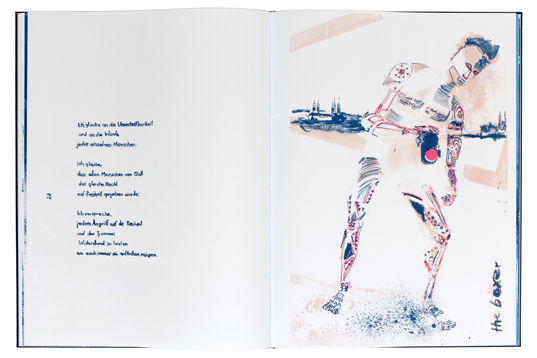 Ich glaube an die Unantastbarkeit
und an die Würde
jedes einzelnen Menschen.
Ich glaube,
dass allen Menschen von Gott
das gleiche Recht
auf Freiheit gegeben wurde.
Ich verspreche,
jedem Angriff auf die Freiheit
und der Tyrannei
Widerstand zu leisten
wo auch immer sie auftreten mögen.
the boxer